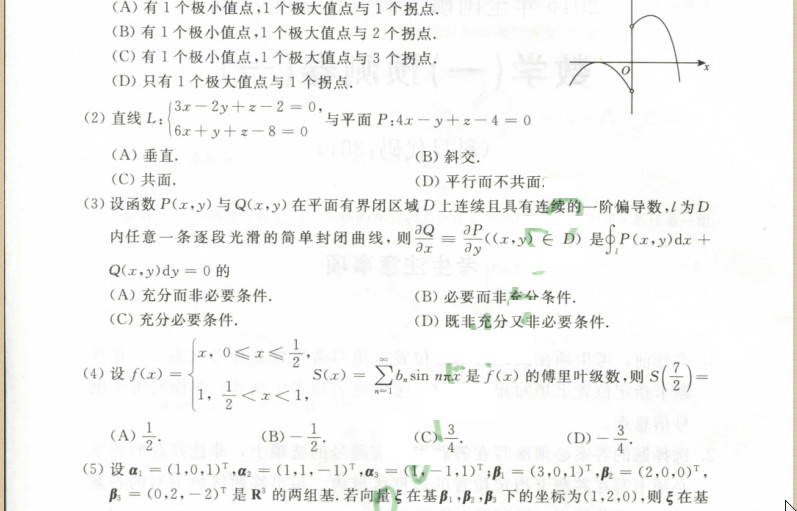 (A) 有 1 个极小值点,1 个极大值点与 1 个拐点.
(B) 有 1 个极小值点,1 个极大值点与 2 个拐点.
(C) 有 1 个极小值点,1 个极大值点与 3 个拐点.
(D) 只有 1 个极大值点与 1 个拐点.
O x
(2) 直线 L: { 3x − 2y + z − 2 = 0, 6x + y + z − 8 = 0 与平面 P:4x − y + z − 4 = 0
(A) 垂直. (B) 斜交.
(C) 共面. (D) 平行而不共面.
(3) 设函数 P(x,y) 与 Q(x,y) 在平面有界闭区域 D 上连续且具有连续的一阶偏导数,l 为 D
内任意一条逐段光滑的简单封闭曲线,则 ∂Q/∂x ≡ ∂P/∂y ((x,y) ∈ D) 是 ∮_l P(x,y)dx +
Q(x,y)dy = 0 的
(A) 充分而非必要条件. (B) 必要而非充分条件.
(C) 充分必要条件. (D) 既非充分又非必要条件.
(4) 设 f(x) = { x, 0 ⩽ x ⩽ 1/2, 1, 1/2 < x < 1, S(x) = ∑_{n=1}^{∞} b_n sin nπx 是 f(x) 的傅里叶级数,则 S(7/2) =
(A) 1/2. (B) − 1/2. (C) 3/4. (D) − 3/4.
(5) 设 α₁ = (1,0,1)ᵀ,α₂ = (1,1,−1)ᵀ,α₃ = (1,−1,1)ᵀ;β₁ = (3,0,1)ᵀ,β₂ = (2,0,0)ᵀ,
β₃ = (0,2,−2)ᵀ 是 R³ 的两组基.若向量 ξ 在基 β₁,β₂,β₃ 下的坐标为(1,2,0),则 ξ 在基